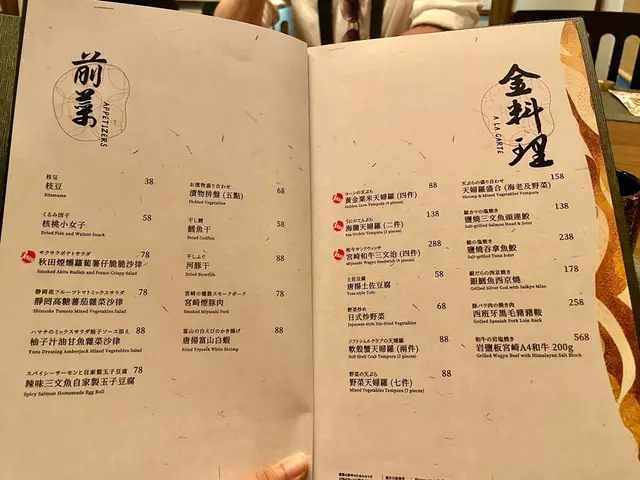 前菜
APPETIZERS
枝豆
枝豆 38
Edamame
くるみ団子
核桃小女子 58
Dried Fish and Walnut Snack
サクサクポテトサラダ
秋田煙燻蘿蔔薯仔脆脆沙律 78
Smoked Akita Radish and Potato Crispy Salad
静岡産フルーツトマトミックスサラダ
靜岡高糖蕃茄雜菜沙律 78
Shizuoka Tomato Mixed Vegetables Salad
ハマチのミックスサラダ柚子ソース添え
柚子汁油甘魚雜菜沙律 88
Yuzu Dressing Amberjack Mixed Vegetables Salad
スパイシーサーモンと自家製玉子豆腐
辣味三文魚自家製玉子豆腐 78
Spicy Salmon Homemade Egg Roll
お漬物盛り合わせ
漬物拼盤 (五點) 68
Pickled Vegetables
干し鱈
鱈魚干 58
Dried Codfish
干しふぐ
河豚干 78
Dried Blowfish
宮崎の燻製スモークポーク
宮崎煙豚肉 78
Smoked Miyazaki Pork
富山の白えびのかき揚げ
唐揚富山白蝦 88
Fried Toyama White Shrimp
金料理
A LA CARTE
コーンの天ぷら
黃金粟米天婦羅 (四件) 88
Golden Corn Tempura (4 pieces)
うにのてんぷら
海膽天婦羅 (二件) 138
Sea Urchin Tempura (2 pieces)
和牛サンドウィッチ
宮崎和牛三文治 (四件) 288
Miyazaki Wagyu Sandwich (4 pieces)
土佐豆腐
唐揚土佐豆腐 58
Tosa-style Tofu
野菜炒め
日式炒野菜 68
Japanese-style Stir-fried Vegetables
ソフトシェルクラブの天婦羅
軟殼蟹天婦羅 (兩件) 88
Soft Shell Crab Tempura (2 pieces)
野菜の天ぷら
野菜天婦羅 (七件) 88
Mixed Vegetables Tempura (7 pieces)
天ぷらの盛り合わせ
天婦羅盛合 (海老及野菜) 158
Shrimp & Mixed Vegetables Tempura
鮭カマの塩焼き
鹽燒三文魚頭連鮫 138
Salt-grilled Salmon Head & Joint
鮪の塩焼き
鹽燒吞拿魚鮫 238
Salt-grilled Tuna Joint
銀だらの西京焼き
銀鱈魚西京燒 178
Grilled Silver Cod with Saikyo Miso
豚バラ肉の焼き肉
西班牙黑毛豬豬鞍 258
Grilled Spanish Pork Loin Rack
和牛の岩塩焼き
岩鹽板宮崎A4和牛 200g 568
Grilled Wagyu Beef with Himalayan Salt Block